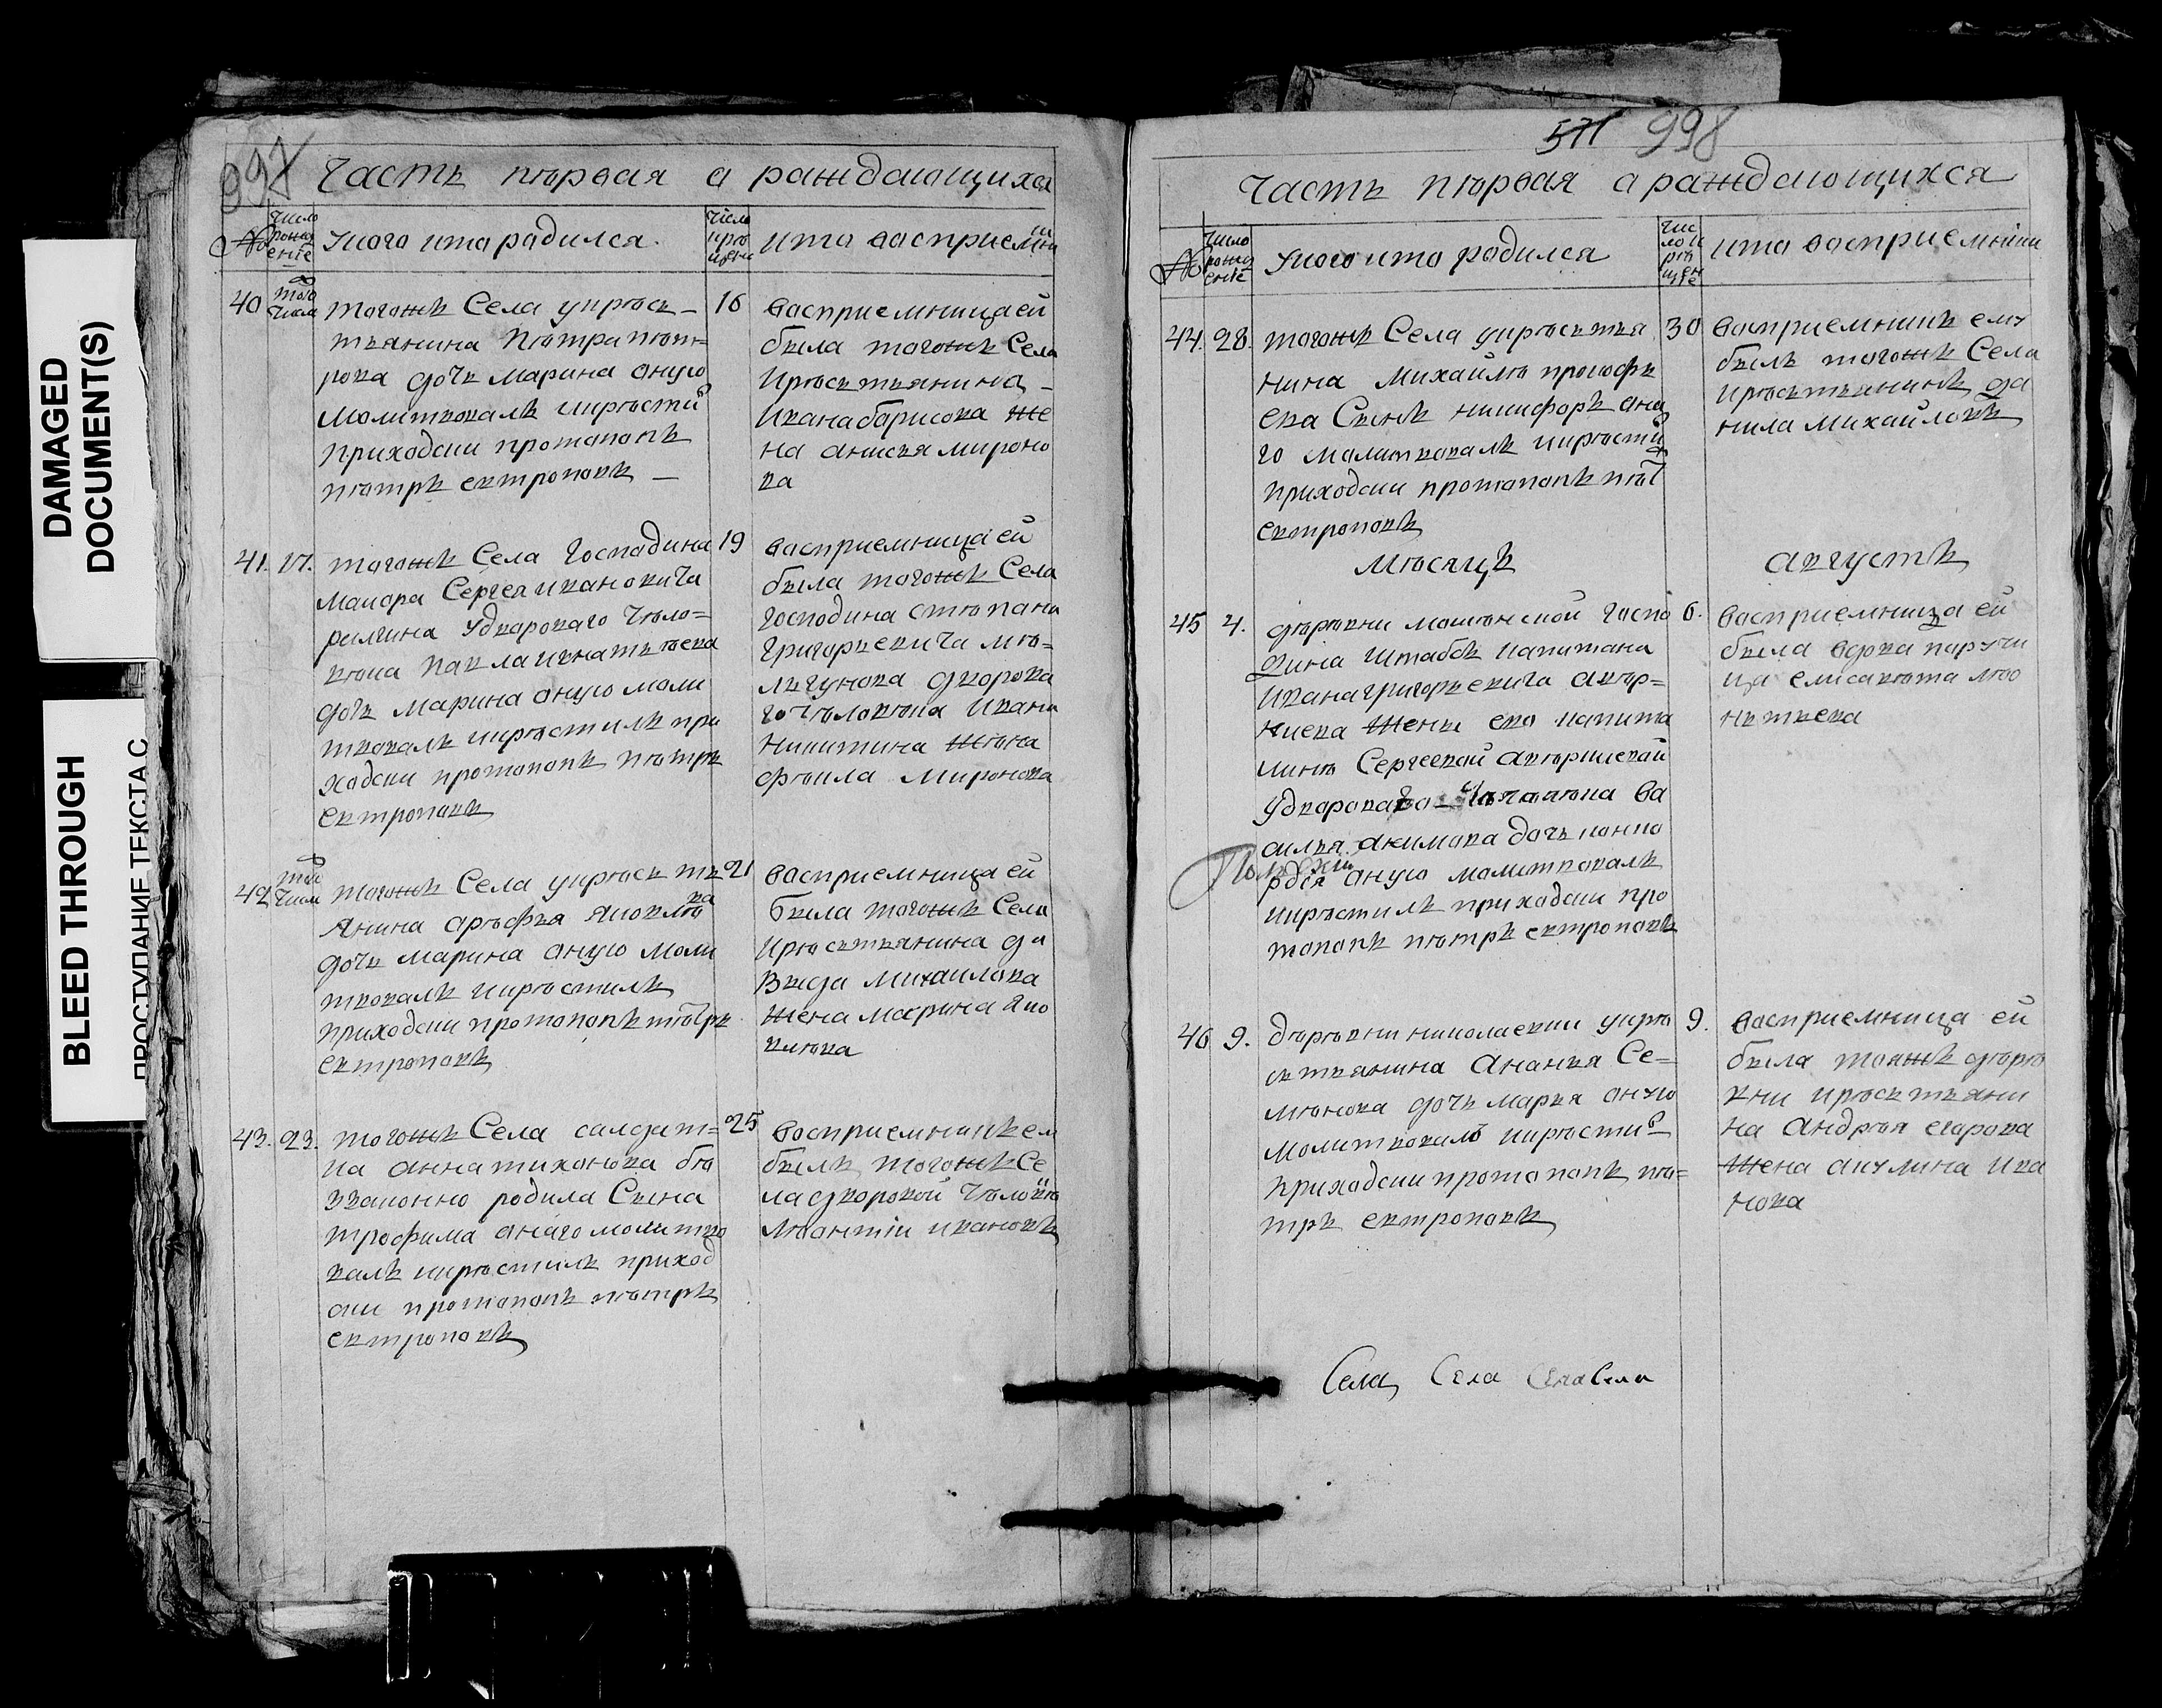 DAMAGED
DOCUMENT(S)
BLEED THROUGH
ПРОСТУПАНИЕ ТЕКСТА С
998
Часть пѣрвая о раждающихся
№
число рожд ение
Укого кто радился
число крѣ щени
кто васприемни
40
того числа
тогожъ Села укрѣск_
тьянина Пѣтра пѣт=
рова дочь марина оную
молитвовалъ икрѣстил
приходски протапопъ
пѣтръ евтроповъ _
16
васприемница ей
была тогожъ Села
крѣсктьянина _
Ивана барисова же
на анисья мироно
ва
41.
17.
тогожъ Села Господина
маиора Сергея ивановича
рилчина Удворового чѣло=
вѣка павла игнатьева
дочь марина оную моли
твовалъ икрѣстилъ при
ходски протапопъ пѣтръ
евтроповъ
19
васприемница ей
была тогожъ Села
господина стѣпана
григорьевича мѣ=
льгунова дворова
го чѣловѣка Ивана
никитина жѣна
фѣкла миронова
42
тогожъ Села укрѣск ть
янина арѣфья яковлѣ
ва
дочь марина оную моли
твовалъ икрѣстилъ
приходски протапопъ пѣтръ
евтроповъ
21
васприемница ей
была тогожъ Села
крѣсктьянина да
выда михаилова
жена марина яко
влѣва
43.
23.
тогожъ Села салдат=
ка анна тихонова бѣ
ззаконно родила Сына
трофима онаго молитво
валъ икрѣстилъ приход
ски протапопъ пѣтръ
евтроповъ
25
васприемникъ ем
былъ тогожъ Се
ла дворовой чѣловѣ
лѣонтіи ивановъ
571 998
Часть пѣрвая о раждающихся
№
число рожд ение
Укого кто родился
чис ло к рѣ щен не
кто васприемники
44.
28.
тогожъ Села укрѣсктья
нина михайлѣ прокофь
ева Сынъ никифоръ она
го малитвовалъ икрѣсти
приходски протапопъ пѣт
евтроповъ
30
васприемникъ ему
былъ тогожъ Села
крѣсктьянинъ да
нила михайловъ
Мѣсяцъ августъ
45
4.
дѣрѣвни машѣнской госпо
дина штабсъ капитана
Ивана григорьевича авѣр=
киева жены ево капита
Сергеевой авѣркиевай
Удворова
силья акимова дочь
оную малитвовалъ
икрѣстилъ приходски про
тапопъ пѣтръ евтроповъ
6.
васприемница ей
была вдова паручи
ца елисавѣта лѣо
нтьева
46
9.
дѣрѣвни николаевки укрѣ
сктьянина Ананья Се=
мѣнова дочь марья оную
молитвовалъ икрѣстил
приходски протапопъ пѣ=
тръ евтроповъ
9.
васприемница ей
была тояжъ дѣрѣ
вни крѣсктьяни
на андрѣя егарова
жена акулина ива
нова
Села Села Села Села